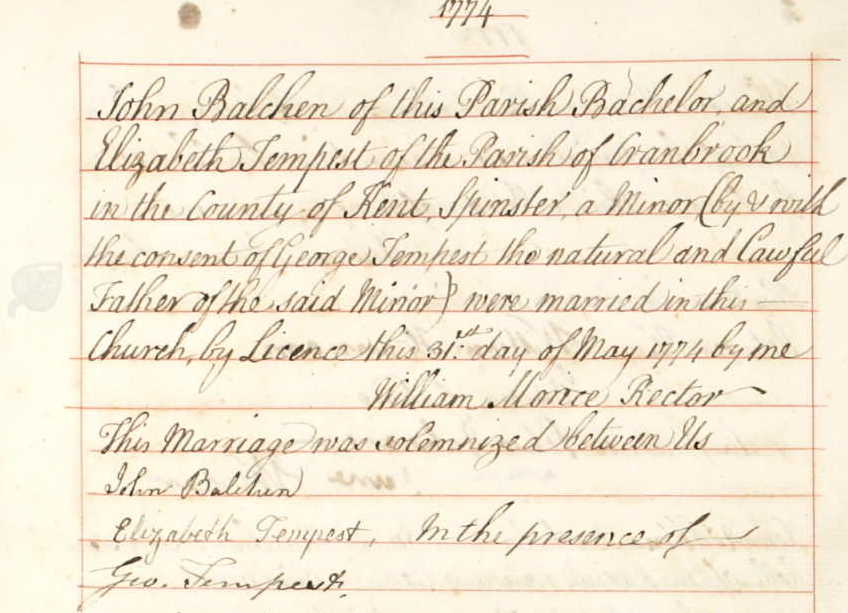 1774
John Balchen of this Parish Bachelor, and
Elizabeth Tempest of the Parish of Cranbrook
in the County of Kent, Spinster, a Minor (by & with
the consent of George Tempest the natural and Lawful
Father of the said Minor) were married in this
Church, by Licence this 31.st day of May 1774 by me
William Morice Rector
This Marriage was solemnized between Us
John Balchen
Elizabeth Tempest, In the presence of
Geo. Tempest.